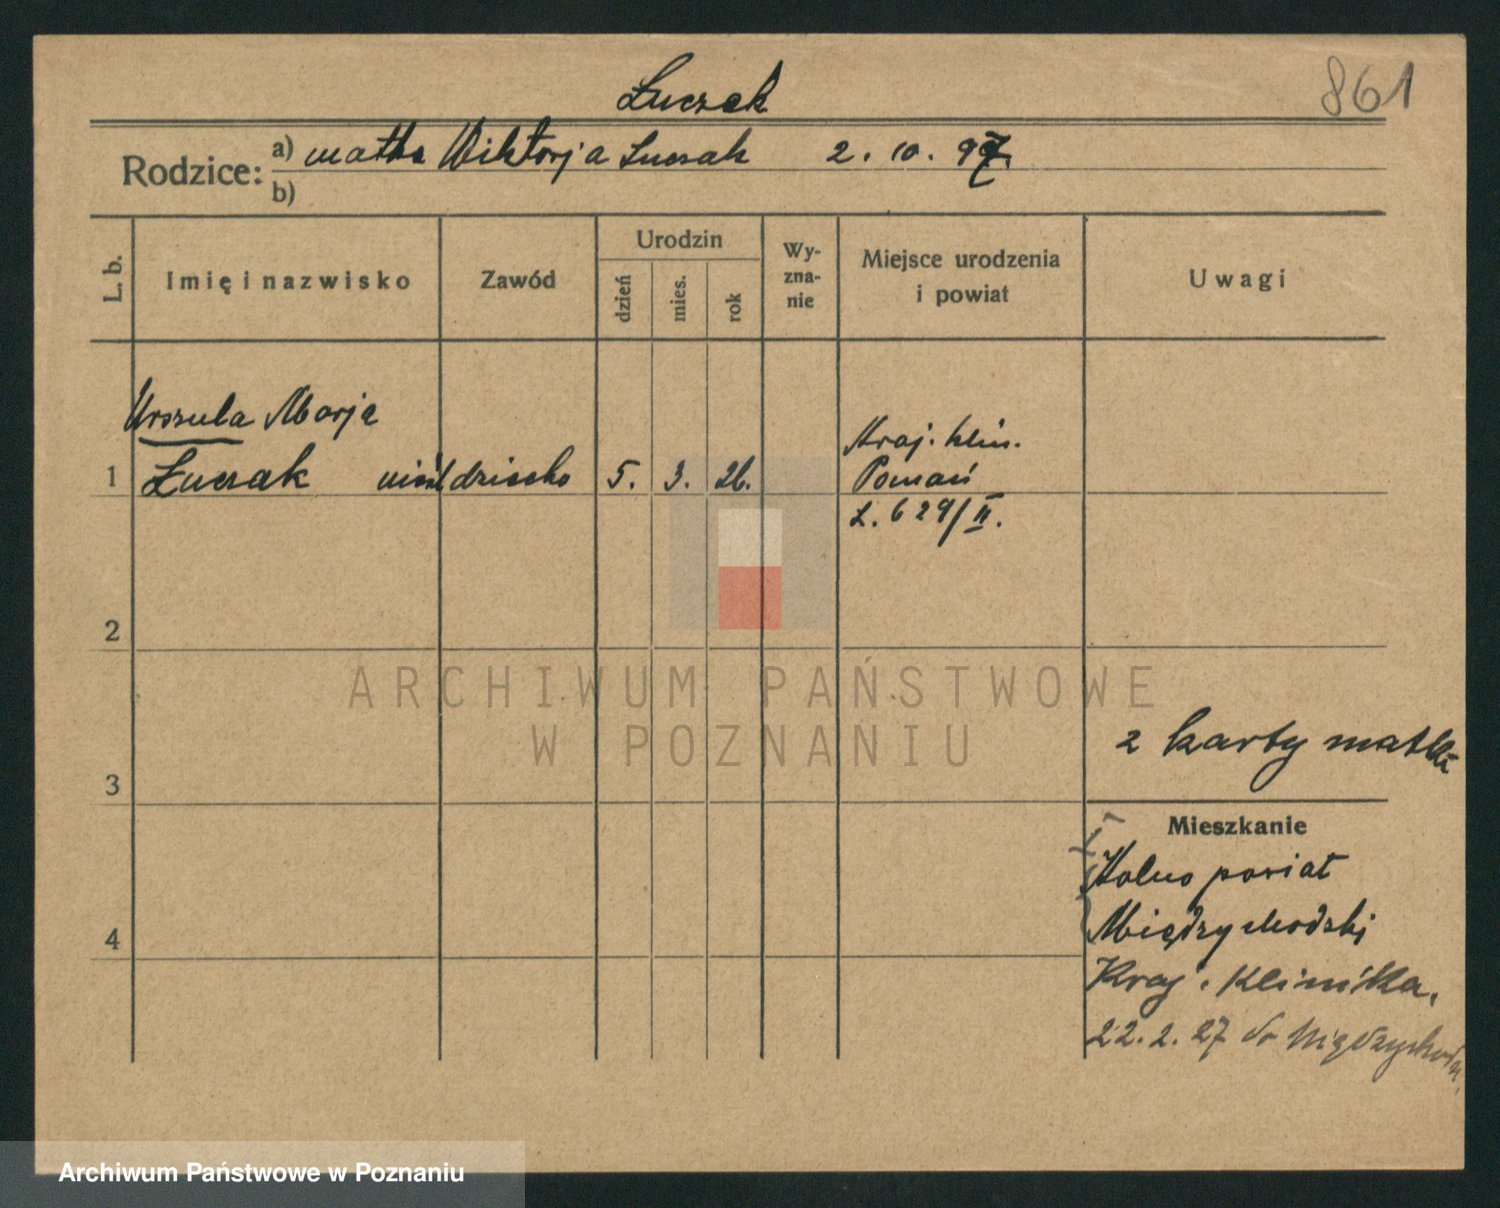 Łuczak
861
Rodzice: a) matka Wiktorja Łuczak 2. 10. 97.
b)
L. b.
Imię i nazwisko
Zawód
Urodzin
dzień
mies.
rok
Wy-
zna-
nie
Miejsce urodzenia
i powiat
Uwagi
Urszula Marja
1 Łuczak nieśl dziecko 5. 3. 26.
Kraj. klin.
Poznań
L. 629/II.
2
ARCHIWUM PAŃSTWOWE
W POZNANIU
2 karty matki
3
Mieszkanie
Kolno powiat
Międzychodzki
4
Kraj. Klinika.
22.2.27 do Międzychodu.
Archiwum Państwowe w Poznaniu